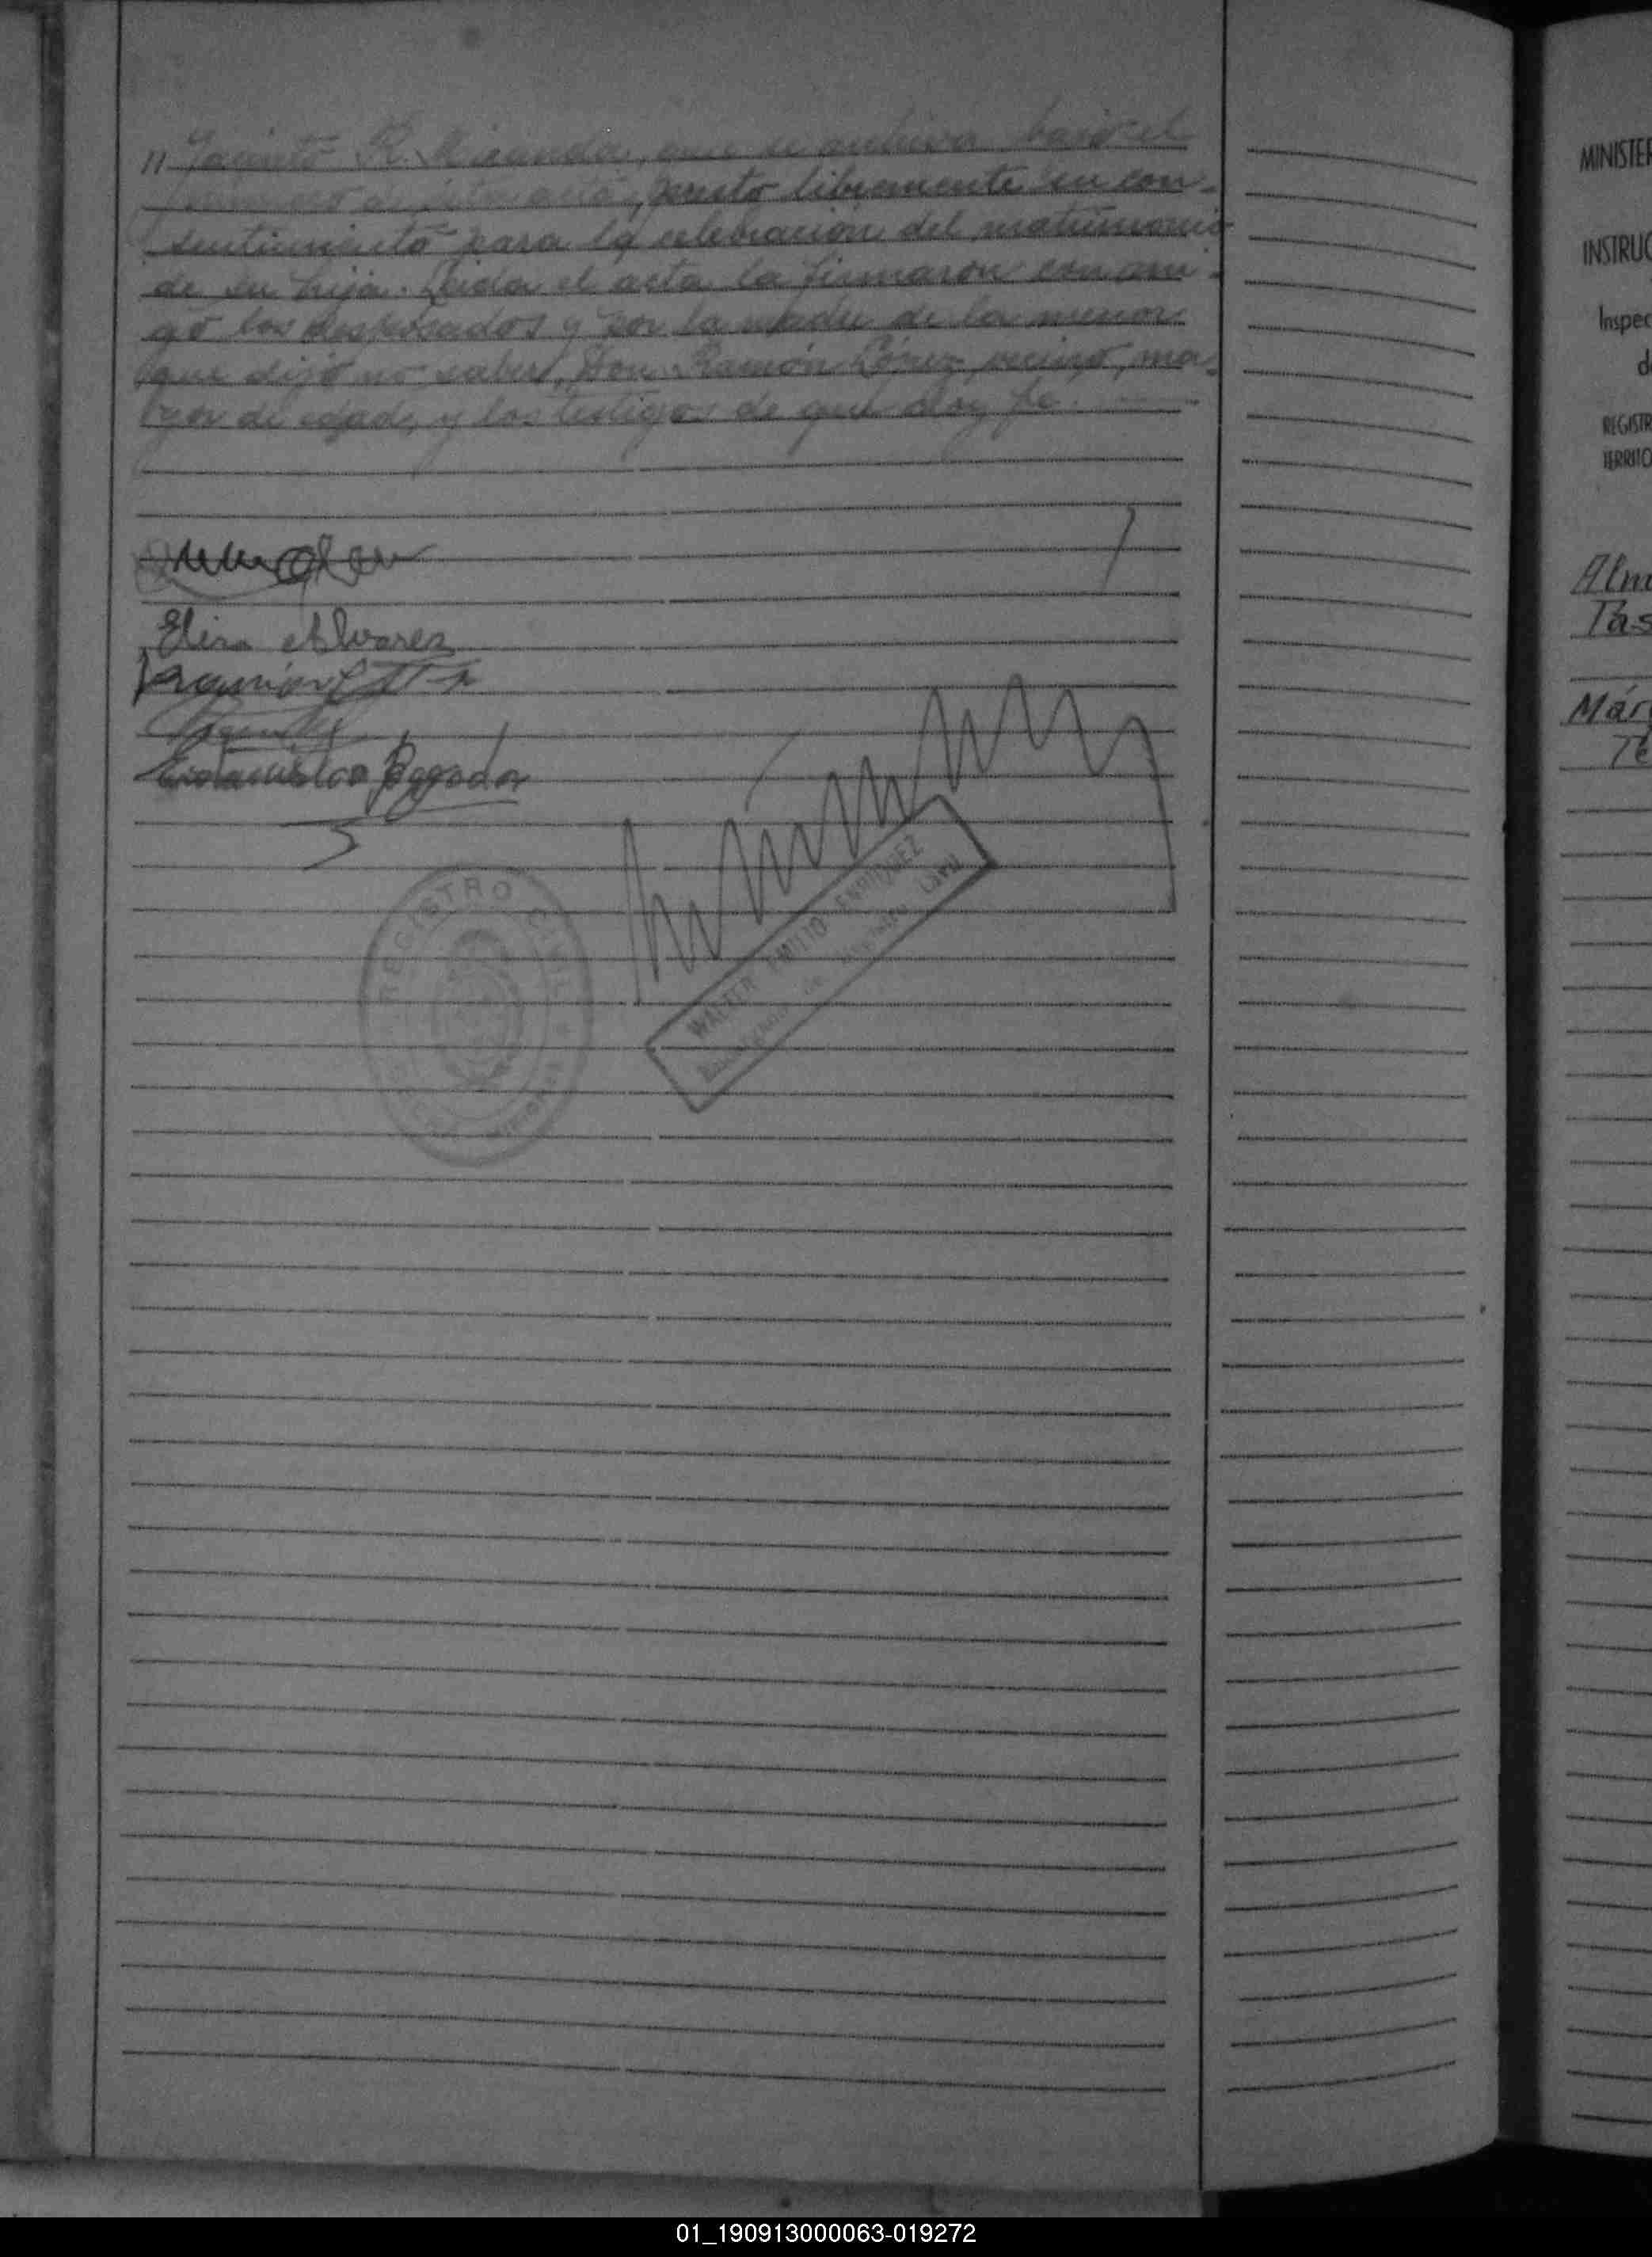 " Jacinto R. Miranda, que se archiva bajo el
número de esta acta, prestó libremente su con-
sentimiento para la celebración del matrimonio
de su hija. Leida el acta la firmaron conmi-
go los desposados y por la madre de la menor
que dijo no saber, Don Ramón López, vecino, ma-
yor de edad, y los testigos de que doy fe.
Elisa Alvarez
Ramón
Estanislao
REGISTRO CIVIL
WALTER EMILIO ENRIQUEZ
MINISTER
INSTRUC
Inspec
d
REGISTR
TERRITO
Alm
Pas
Már
Te
01_190913000063-019272